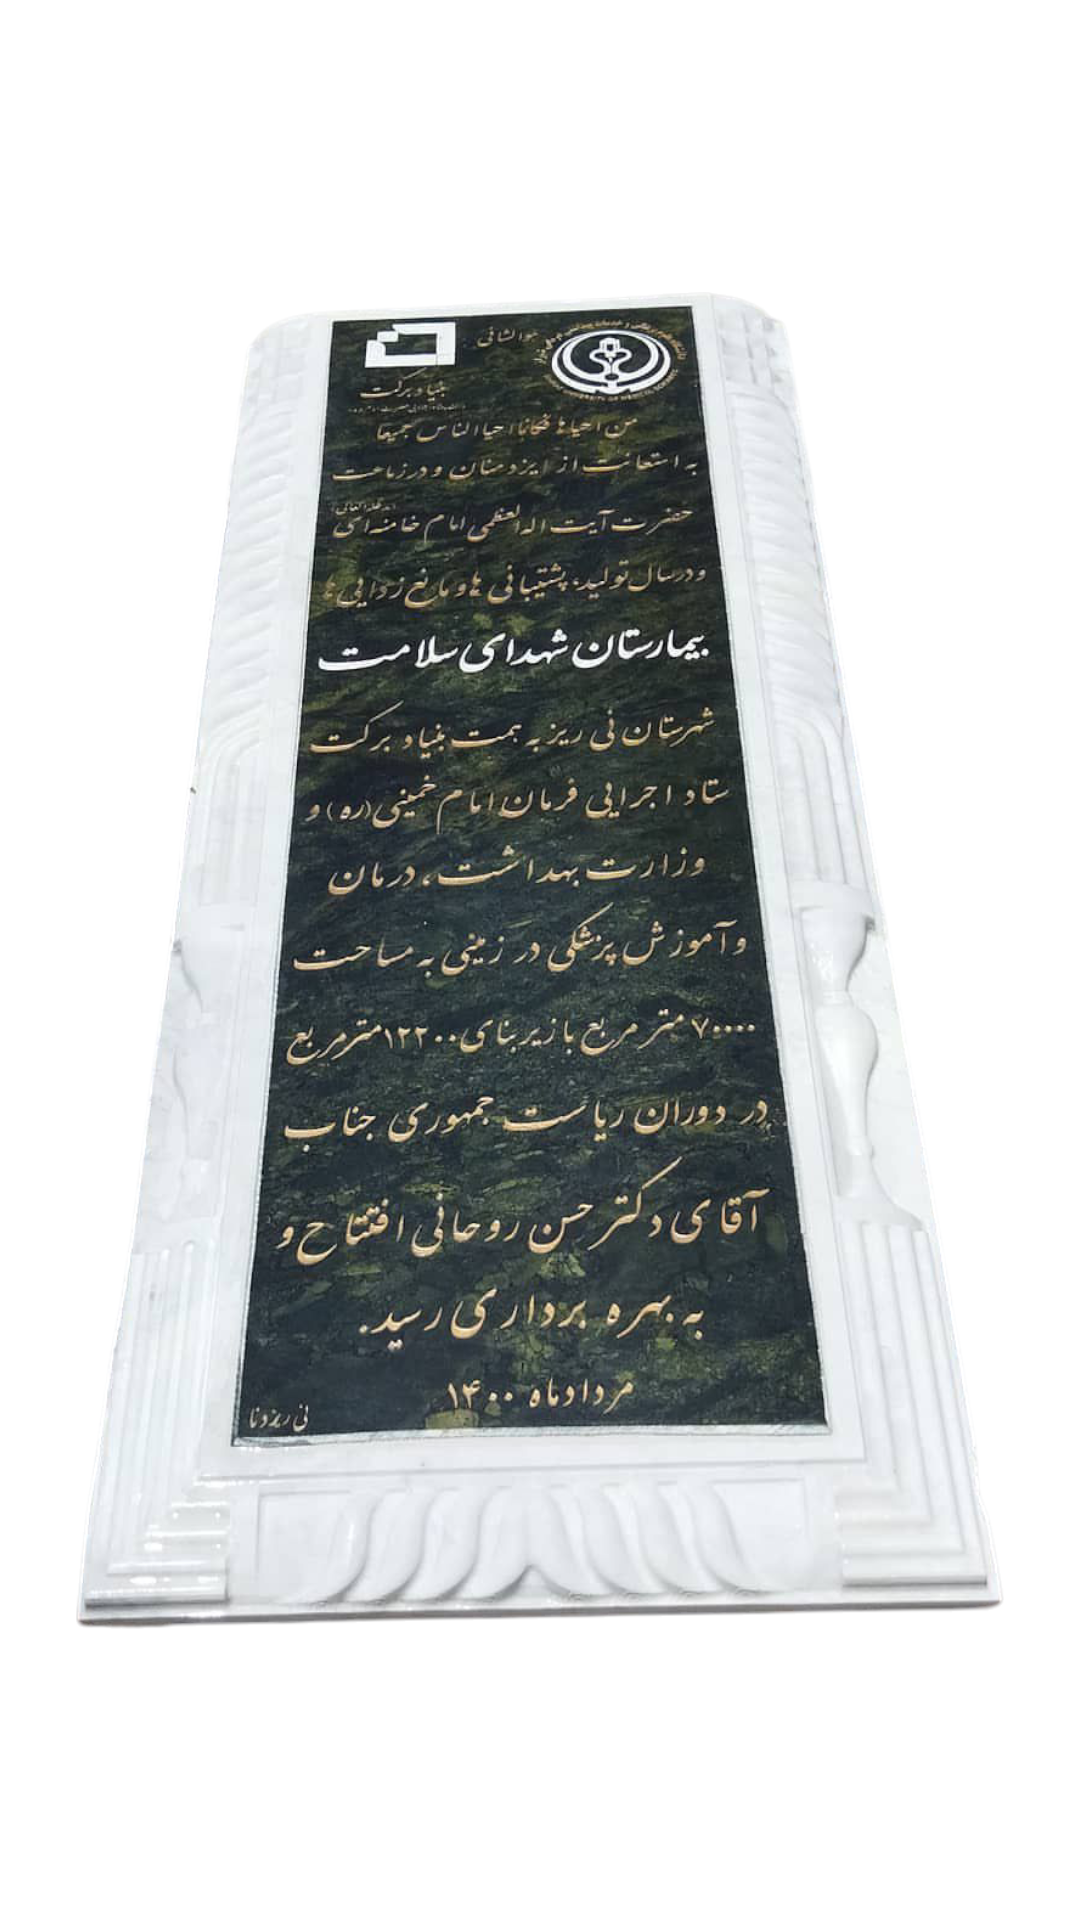 هوالشافی
بنیاد برکت
من احیاها فکانما احیا الناس جمیعا
به استعانت از ایزد منان و در زعامت
حضرت آیت اله العظمی امام خامنه ای (مد ظله العالی)
و در سال تولید، پشتیبانی ها و مانع زدایی ها
بیمارستان شهدای سلامت
شهرستان نی ریز به همت بنیاد برکت
ستاد اجرایی فرمان امام خمینی (ره) و
وزارت بهداشت، درمان
و آموزش پزشکی در زمینی به مساحت
۷۰۰۰۰ متر مربع با زیر بنای ۱۲۲۰۰ متر مربع
در دوران ریاست جمهوری جناب
آقای دکتر حسن روحانی افتتاح و
به بهره برداری رسید.
مرداد ماه ۱۴۰۰
نی ریز دنا